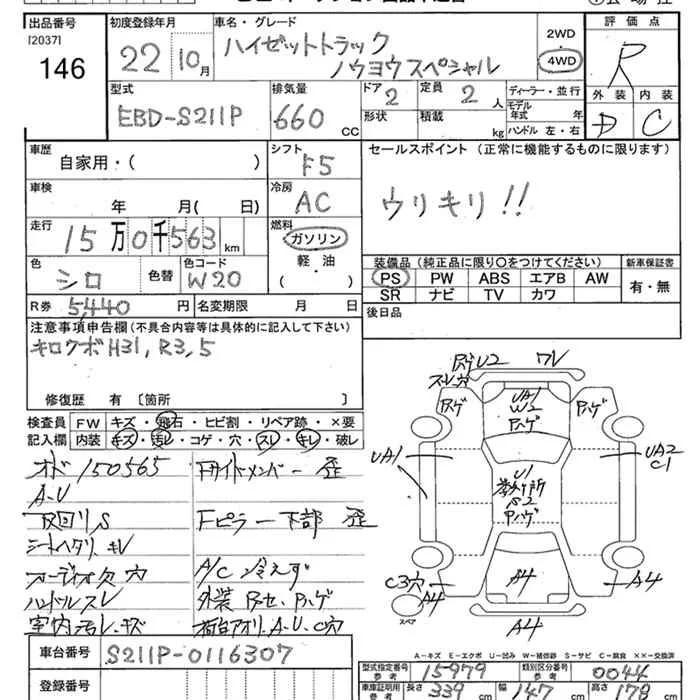 出品番号 [2037] 146
初度登録年月 22 10月
車名・グレード ハイゼットトラック ノウヨウスペシャル
2WD 4WD
評価点 R
外装 内装
D C
型式 EBD-S211P
排気量 660 CC
ドア 2
形状
定員 2人
積載 kg
ディーラー・並行
モデル年式 年
ハンドル 左・右
車歴 自家用・( )
シフト F5
セールスポイント (正常に機能するものに限ります)
ウリキリ!!
車検 年 月( 日)
冷房 AC
走行 15万0千563km
燃料 ガソリン・軽・油 ( )
色 シロ 色替
色コード W20
装備品 (純正品に限り○をつけてください)
新車保証書
PS PW ABS エアB AW
SR ナビ TV カワ
有・無
R券 5,440円
名変期限 月 日
後日品
注意事項申告欄 (不具合内容等は具体的に記入して下さい)
キロクボH31, R3, 5
修復歴 有 [箇所 ]
検査員記入欄
FW キズ・飛石・ヒビ割・リペア跡・×要
内装 キズ・汚レ・コゲ・穴・スレ・キレ・破レ
オド 150565
A・U
下回りS
シートヘタリ、キレ
オーディオ欠 穴
ハンドルスレ
室内汚レ・キズ
Fサイドメンバー 歪
Fピラー下部 歪
A/C 冷えず
荷台アオリ、A・U・C穴
ハゲU2 ワレ
スレ穴
ハゲ
UA1
W2
ハゲ
ハゲ
UA1
UA2
C1
U1
S2
ハゲ
C3穴
A4
A4
A4
A4
スペア
A-キズ E-エクボ U-凹み W-補修跡 S-サビ C-腐食 ××-交換済
車台番号 S211P-0116307
登録番号
型式指定番号 15979
類別区分番号 0044
車庫証明用
長さ 339 cm
幅 147 cm
高さ 178 cm